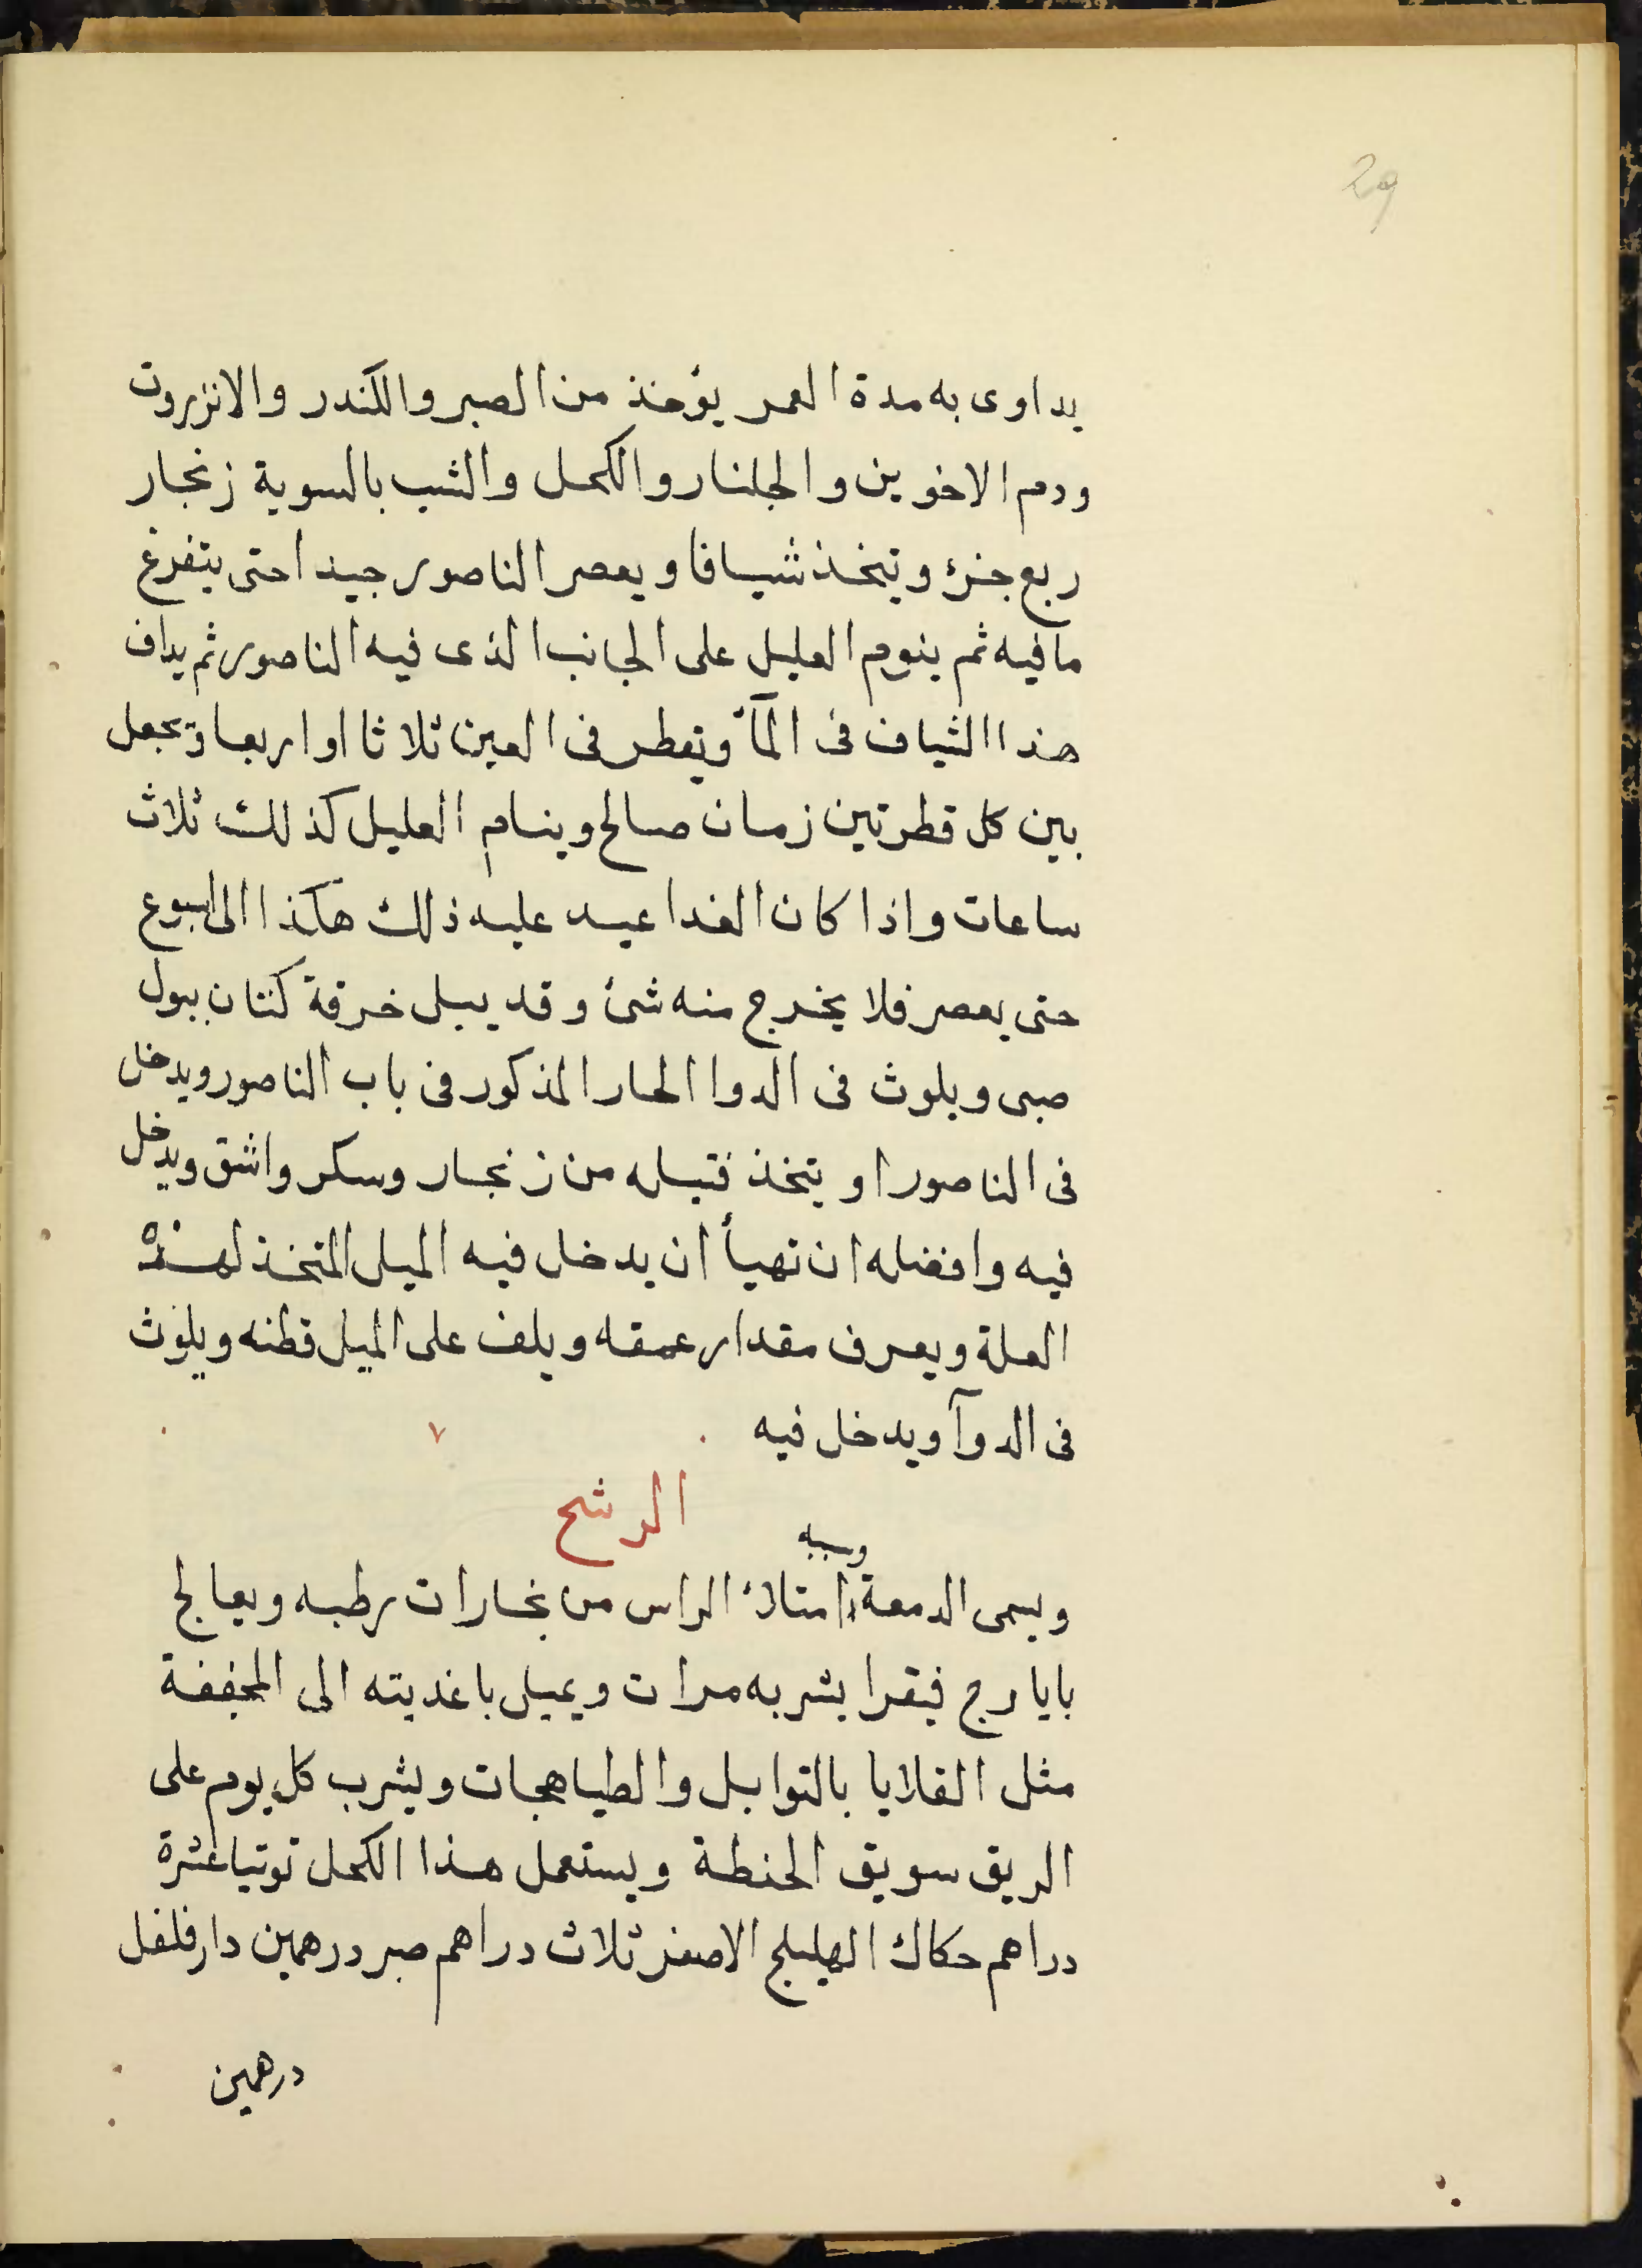 29
يداوى به مدة العمر يؤخذ من الصبر والكندر والانزروت
ودم الاخوين والجلنار والكحل والشب بالسوية زنجار
ربع جزؤ ويتخذ شيافا ويعصر الناصور جيدا حتى يتفرغ
ما فيه ثم ينوم العليل على الجانب الذى فيه الناصور ثم يداف
هذا الشياف فى المآء ويقطر فى العين ثلاثا او اربعا ويجعل
بين كل قطرتين زمان صالح وينام العليل كذلك ثلاث
ساعات واذا كان الغدا عيد عليه ذلك هكذا الى اسبوع
حتى يعصر فلا يخرج منه شئ وقد يبل خرقة كتان ببول
صبى ويلوث فى الدوا الحار المذكور فى باب الناصور ويدخل
فى الناصور او يتخذ فتيله من زنجار وسكر واشق ويدخل
فيه وافضله ان تهيأ ان يدخل فيه الميل المتخذ لهذه
العلة ويعرف مقدار عمقه ويلف على الميل قطنه ويلوث
فى الدوآ ويدخل فيه
الرشح
وسببه
ويسمى الدمعة امتلاء الراس من بخارات رطبه ويعالج
بايارج فيقرا يشربه مرات ويميل باغذيته الى المجففة
مثل القلايا بالتوابل والطياهجات ويشرب كل يوم على
الريق سويق الحنطة ويستعمل هذا الكحل توتيا عشرة
دراهم حكاك الهليلج الاصفر ثلاث دراهم صبر درهمين دارفلفل
درهمين